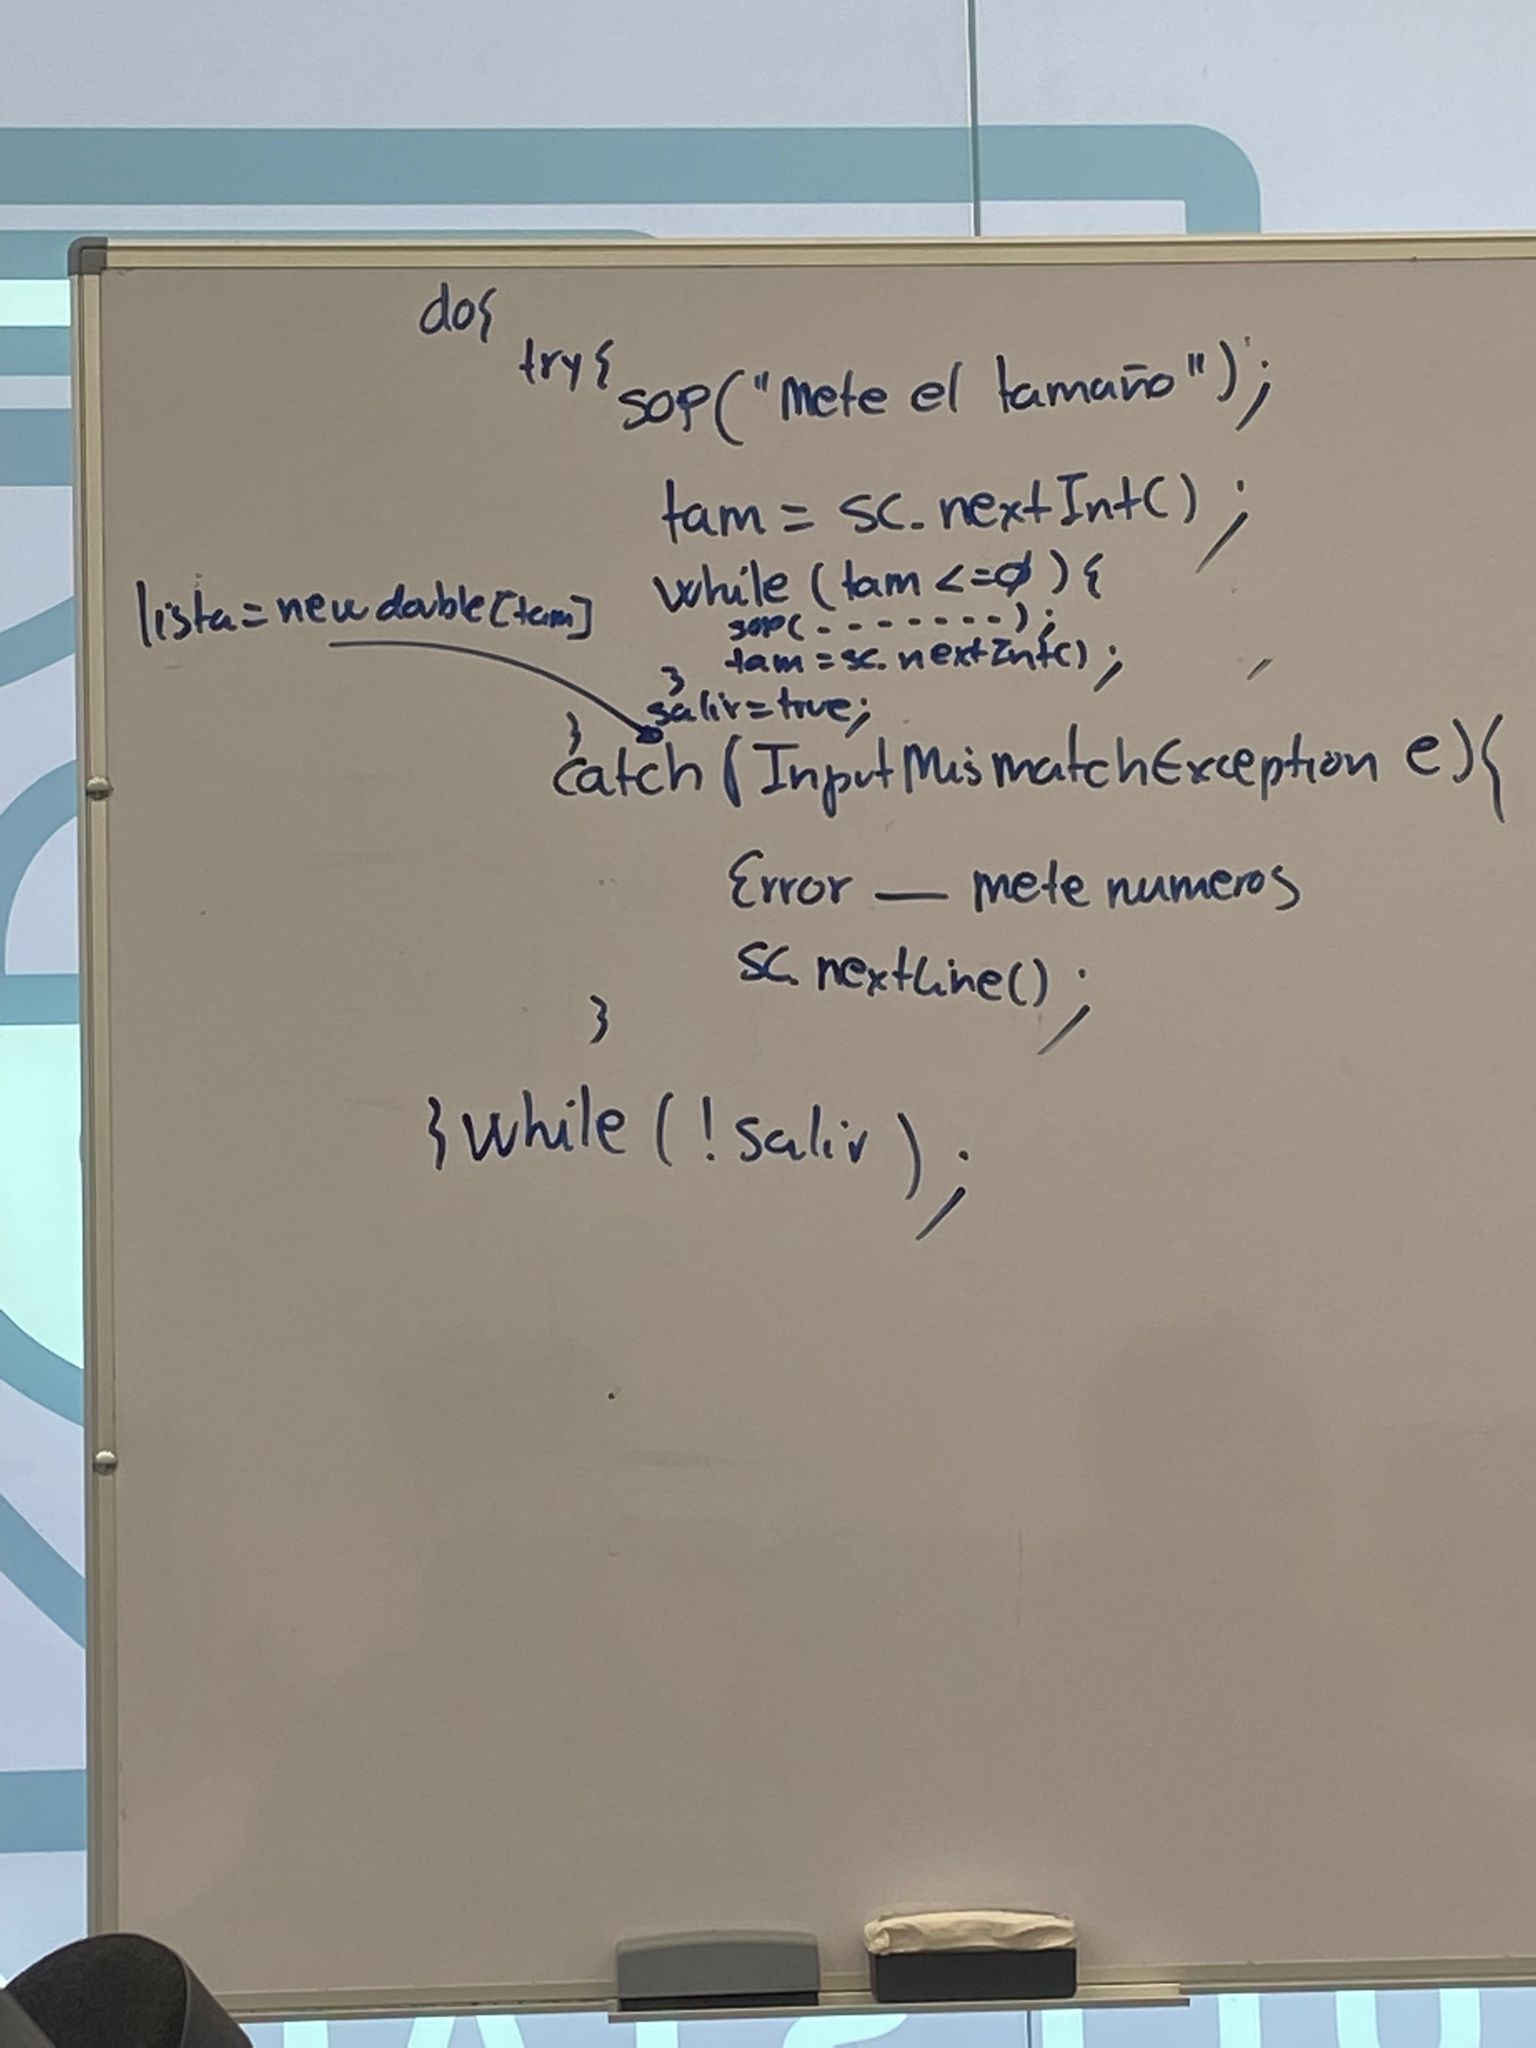 do{
try{
sop("Mete el tamaño");
tam = sc.nextInt();
while (tam <=0){
sop(-------);
tam = sc.nextInt();
}
salir=true;
lista=new double[tam]
}
catch (InputMismatchException e){
Error — mete numeros
sc.nextLine();
}
}while(!salir);